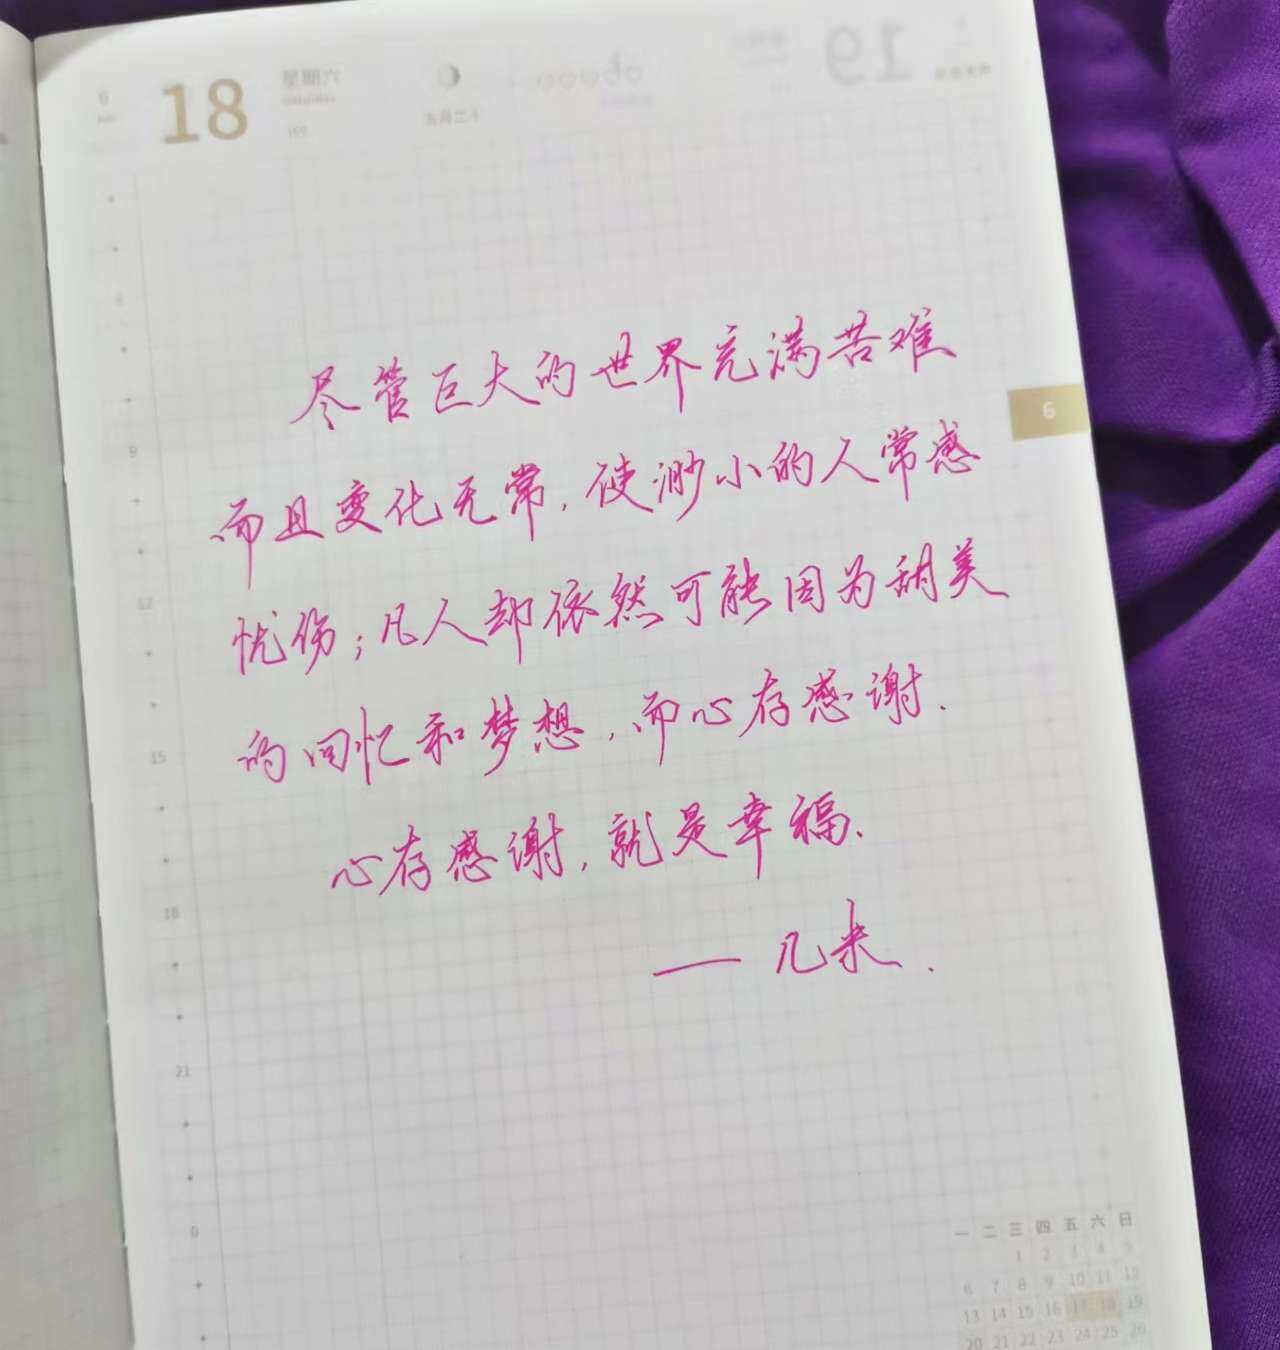 6
18
星期六
169
五月二十
19
尽管巨大的世界充满苦难
而且变化无常，使渺小的人常感
忧伤；凡人却依然可能因为甜美
的回忆和梦想，而心存感谢.
心存感谢，就是幸福.
——几米.
6
9
12
15
18
21
0
一 二 三 四 五 六 日
1 2 3 4 5
6 7 8 9 10 11 12
13 14 15 16 17 18 19
20 21 22 23 24 25 26